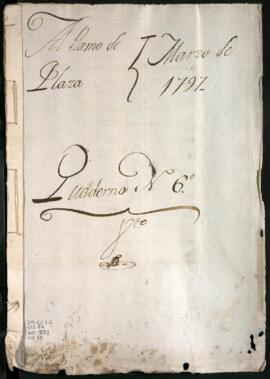 Ramo de
Plaza
Marzo de
1797
Quaderno N 6.º